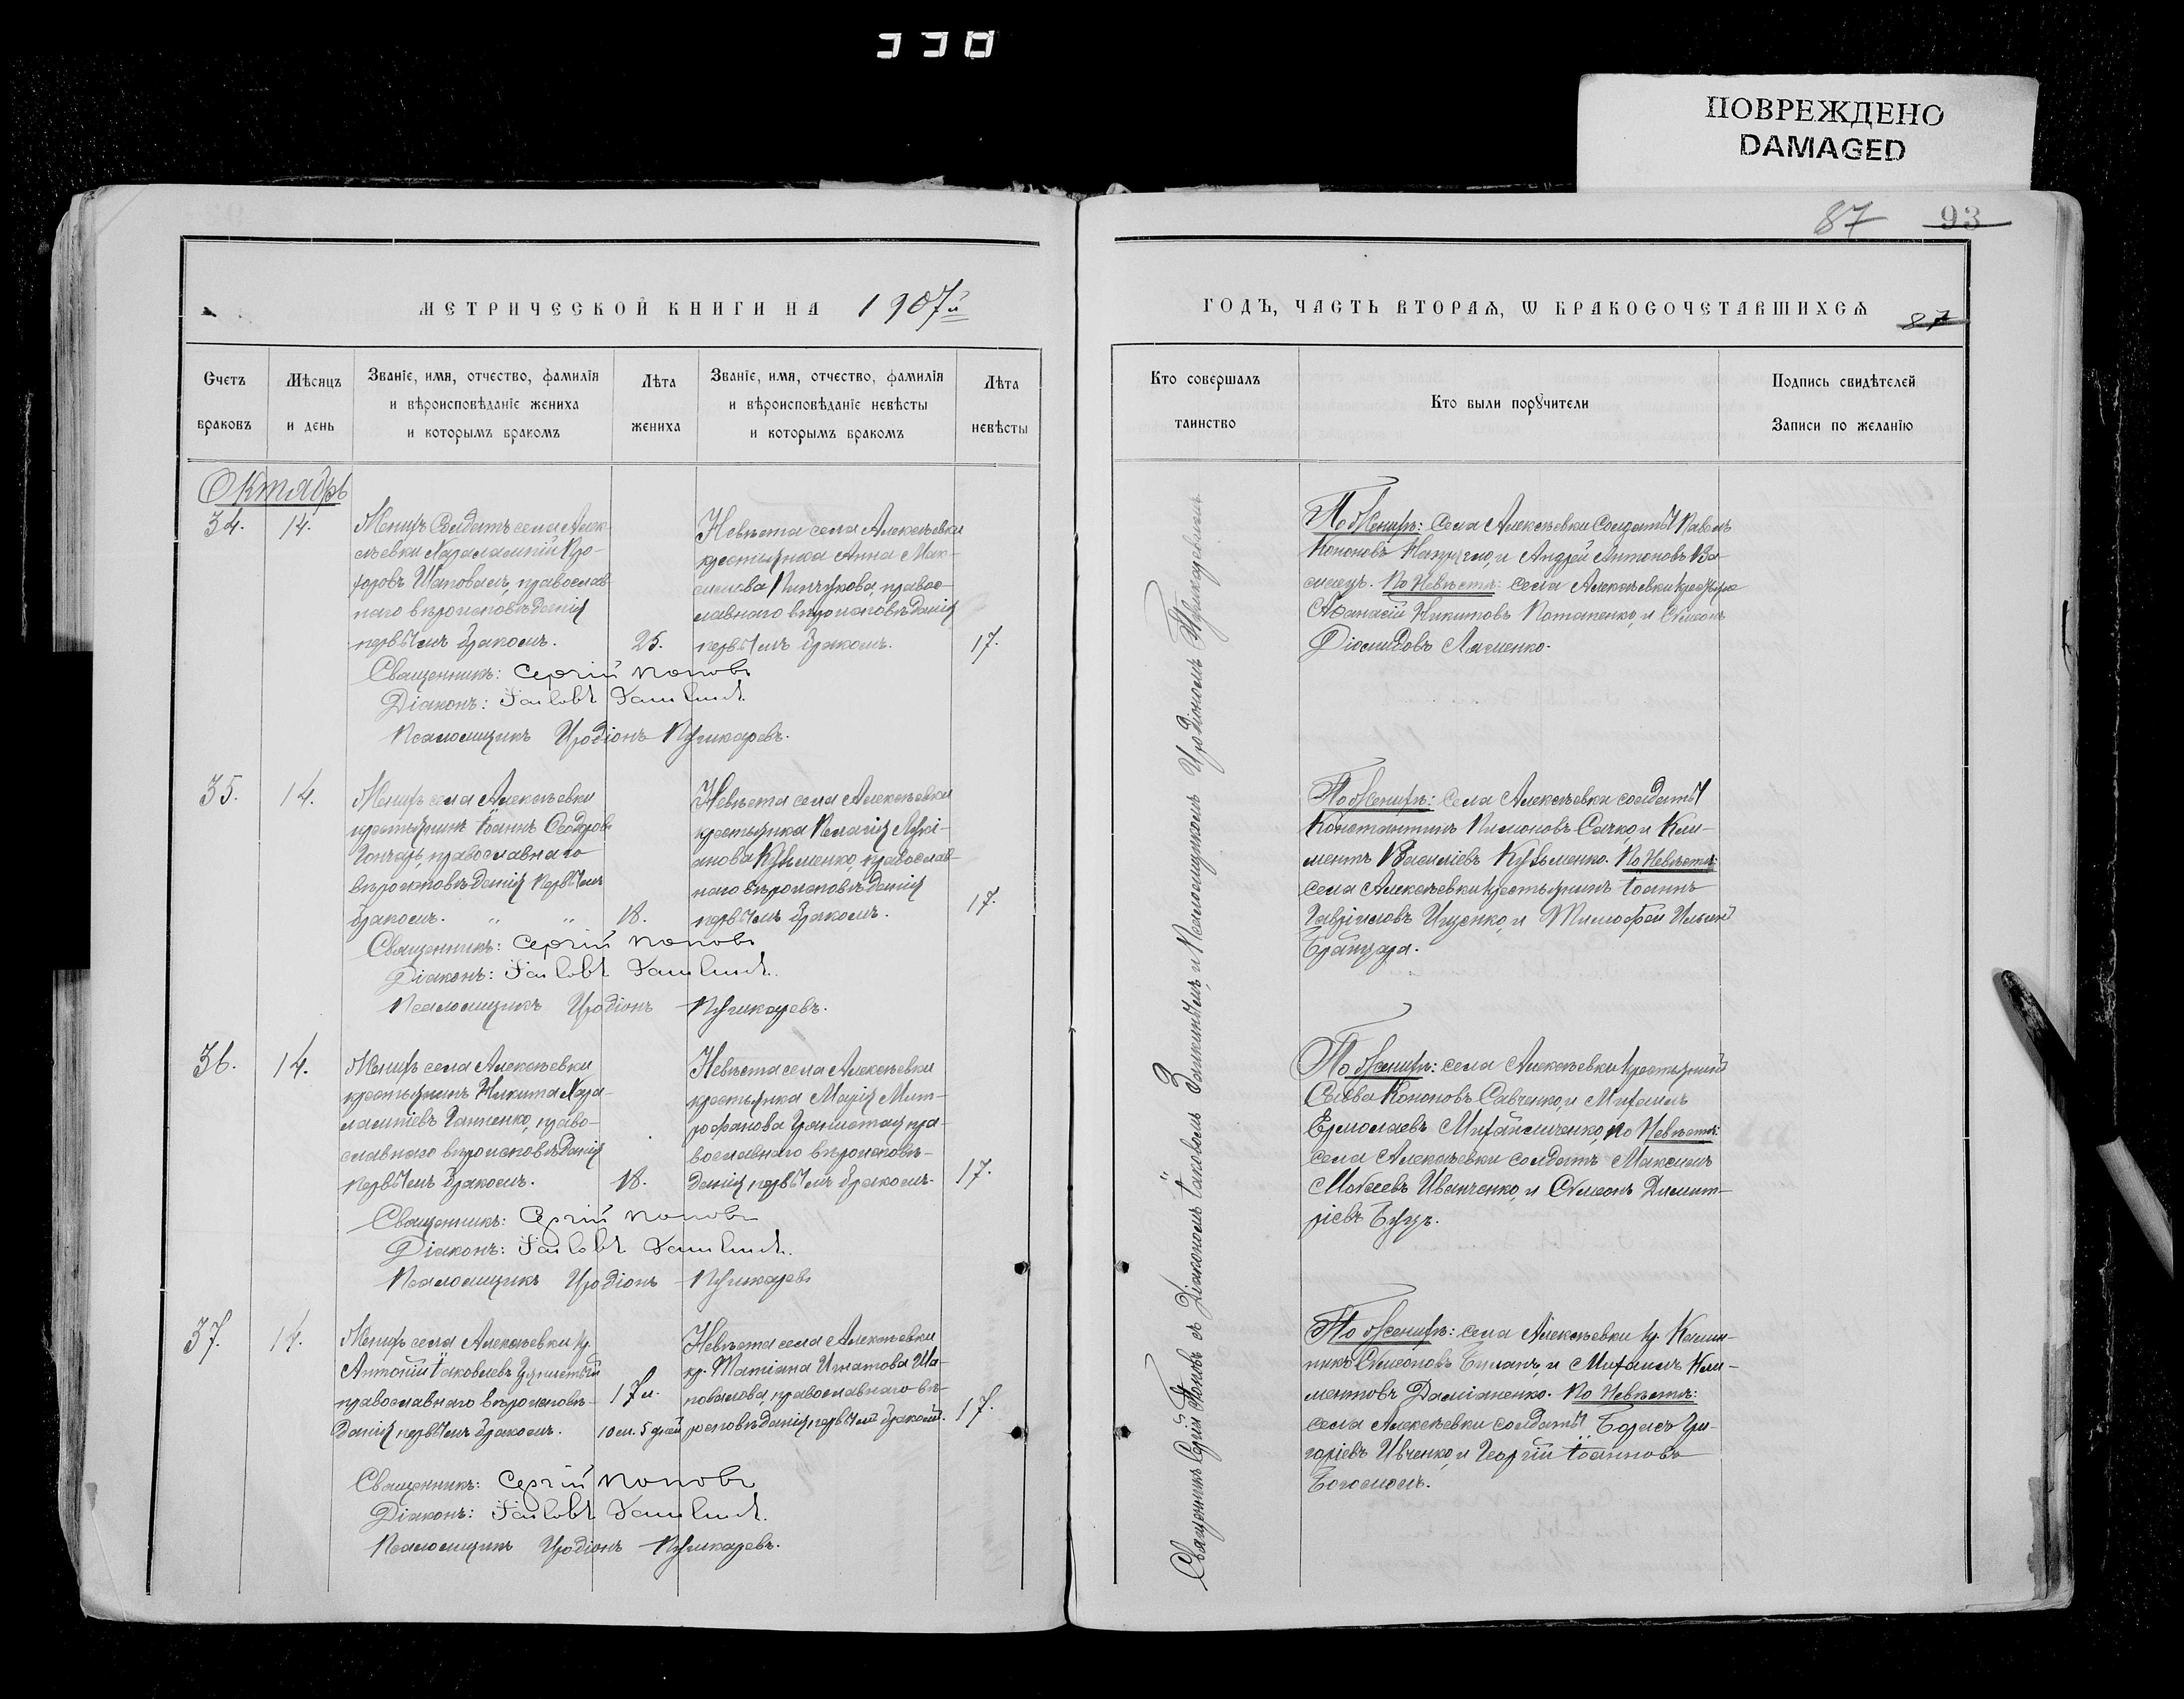 ПОВРЕЖДЕНО
DAMAGED
87 93
МЕТРИЧЕСКОЙ КНИГИ НА 1907й
Счетъ браковъ
Мѣсяцъ и день
Званіе, имя, отчество, фамилія
и вѣроисповѣданіе жениха
и которымъ бракомъ
Лѣта жениха
Званіе, имя, отчество, фамилія
и вѣроисповѣданіе невѣсты
и которымъ бракомъ
Лѣта невѣсты
Октябрь
34. 14.
Женихъ солдатъ села Алек-
сѣевки Харалампій
Шаповалъ, православ-
наго вѣроисповѣданія
первымъ бракомъ.
25.
Невѣста села Алексѣевки
крестьянка Анна Мак-
симова правос-
лавнаго вѣроисповѣданія
первымъ бракомъ.
17.
Священникъ: Сергій Поповъ
Діаконъ: Іаковъ
Псаломщикъ Иродіонъ Пушкаревъ.
35. 14.
Женихъ села Алексѣевки
крестьянинъ Іоаннъ Ѳеодоровъ
Гончаръ, православнаго
вѣроисповѣданія первымъ
бракомъ. " "
18.
Невѣста села Алексѣевки
крестьянка Пелагія Лукі-
анова Кузьменко, православ-
наго вѣроисповѣданія
первымъ бракомъ.
17.
Священникъ: Сергій Поповъ
Діаконъ: Іаковъ
Псаломщикъ Иродіонъ Пушкаревъ.
36. 14.
Женихъ села Алексѣевки
крестьянинъ Никита Хара-
лампіевъ право-
славнаго вѣроисповѣданія
первымъ бракомъ.
18.
Невѣста села Алексѣевки
крестьянка Марія Мит-
рофанова пра-
вославнаго вѣроисповѣ-
данія первымъ бракомъ.
17.
Священникъ: Сергій Поповъ
Діаконъ: Іаковъ
Псаломщикъ Иродіонъ Пушкаревъ
37. 14.
Женихъ села Алексѣевки кр.
Антоній Іаковлевъ
православнаго вѣроисповѣ-
данія первымъ бракомъ.
17 л.
10 м. 5 дней
Невѣста села Алексѣевки
кр. Татіана Игнатова Ша-
повалова, православнаго вѣ-
роисповѣданія первымъ бракомъ.
17.
Священникъ: Сергій Поповъ
Діаконъ: Іаковъ
Псаломщикъ Иродіонъ Пушкаревъ.
ГОДЪ, ЧАСТЬ ВТОРАЯ, Ѡ БРАКОСОЧЕТАВШИХСЯ
87
Кто совершалъ таинство
Кто были порꙋчители
Подпись свидѣтелей
Записи по желанію
Священникъ Сергій Поповъ съ Діакономъ Іаковомъ и Псаломщикомъ Иродіономъ Пушкаревымъ
По Женихѣ: села Алексѣевки солдаты Павелъ
Кононовъ и Андрей Антоновъ
По Невѣстѣ: села Алексѣевки
Аѳанасій Никитовъ Потапенко, и Симеонъ
Діомидовъ
По Женихѣ: села Алексѣевки солдаты
Константинъ Сачко, и Кли-
ментъ Василіевъ Кузьменко. По Невѣстѣ:
села Алексѣевки крестьянинъ Іоаннъ
Гавріиловъ Ищенко, и Тимофей Ильинъ
По Женихѣ: села Алексѣевки крестьянинъ
Савва Кононовъ Савченко, и Михаилъ
Ермолаевъ Михайличенко, По Невѣстѣ:
села Алексѣевки солдатъ Максимъ
Иванченко, и Симеонъ Димит-
ріевъ
По Женихѣ: села Алексѣевки кр.
Симеоновъ и Михаилъ Кли-
ментовъ Даміаненко. По Невѣстѣ:
села Алексѣевки солдаты Борисъ Гри-
горіевъ Ивченко, и Георгій Іоанновъ